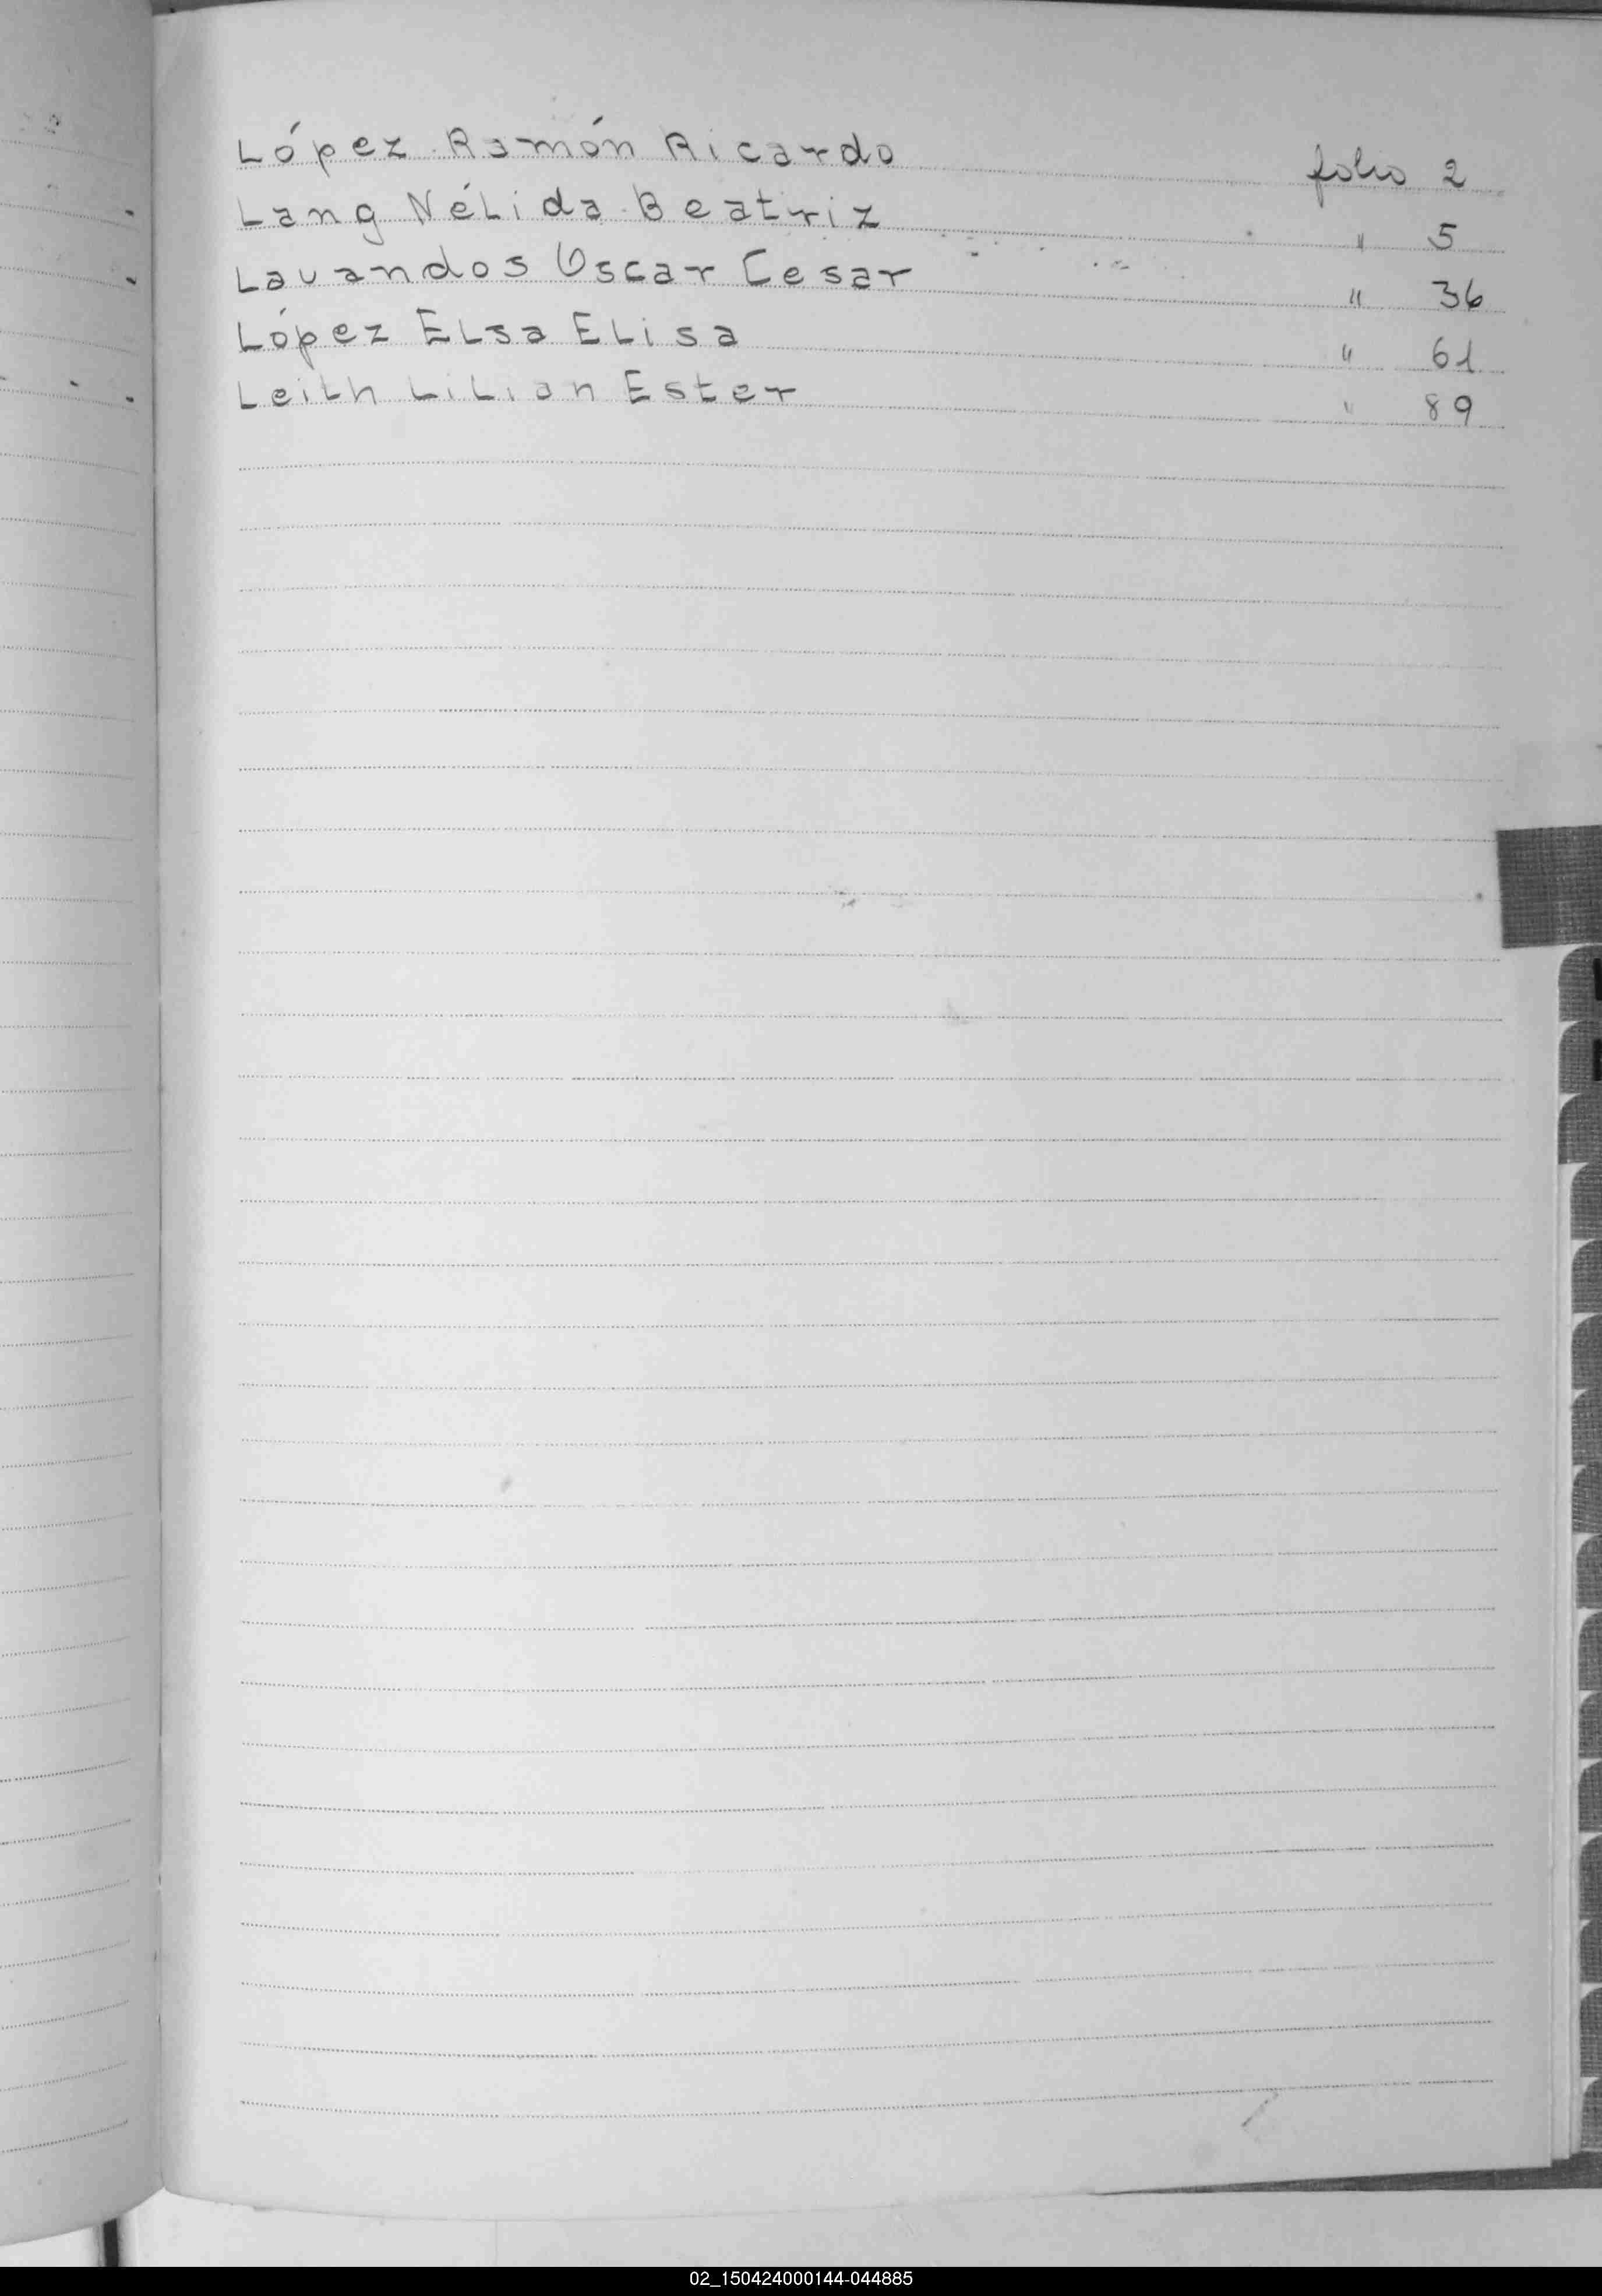 López Ramón Ricardo folio 2
Lang Nélida Beatriz " 5
Lavandos Oscar Cesar " 36
López Elsa Elisa " 61
Leith Lilian Ester " 89
02_150424000144-044885